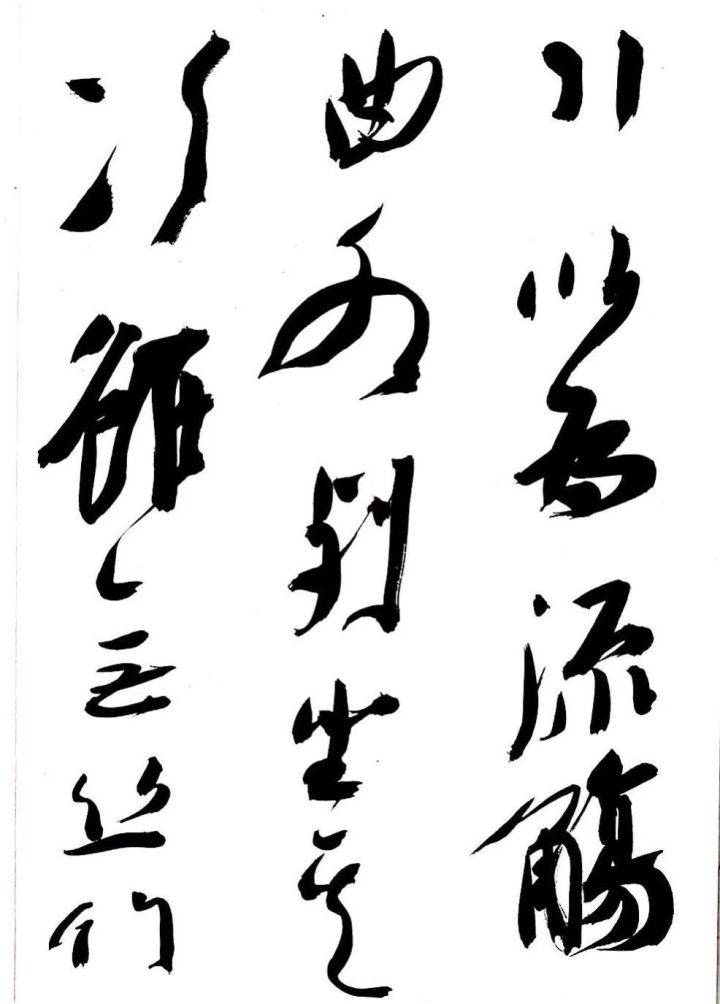 引以為流觴
曲水列坐其
次雖無絲竹